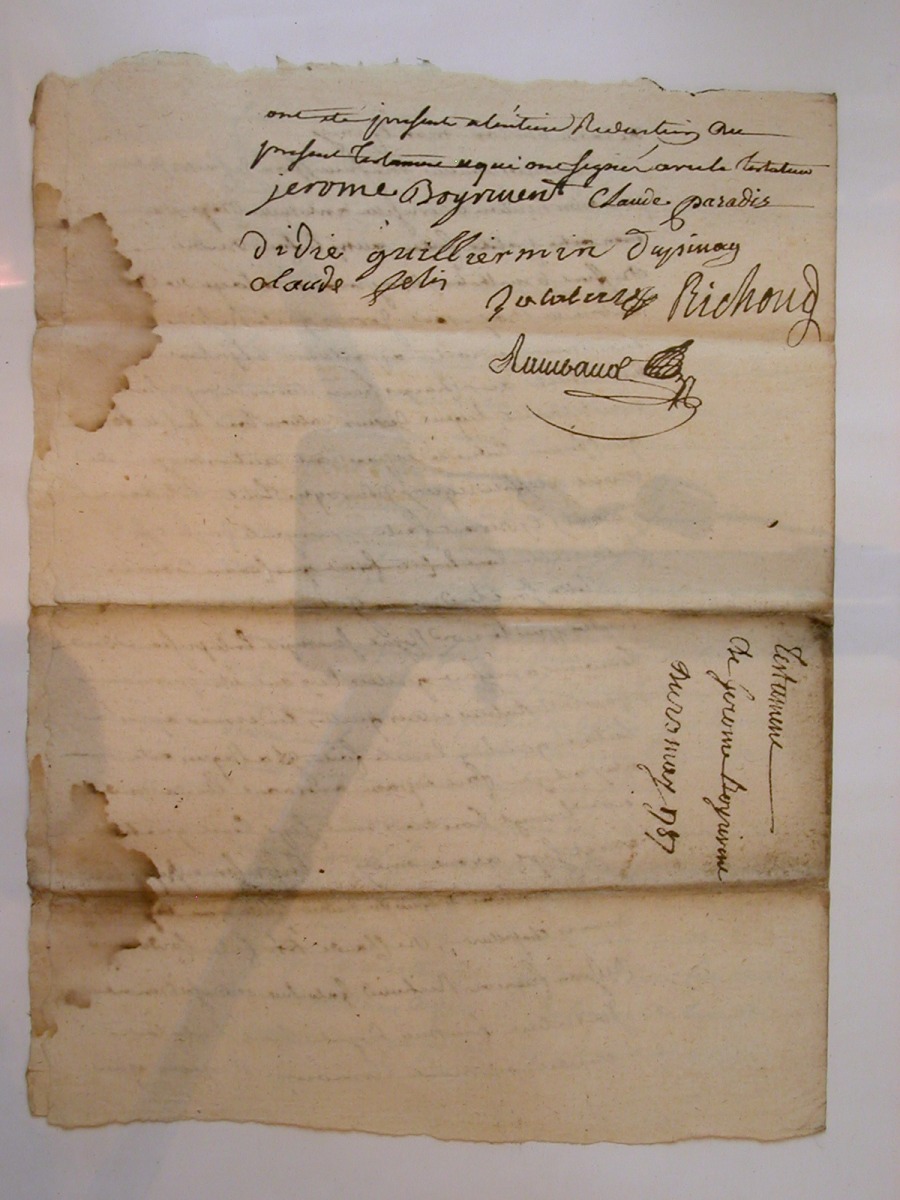 ont été present a lentiere Redaction Du
present Testament et qui ont signé avec le testateur
jerome Boyrivent Claude paradis
didie guilliermin Dupinay
claude gelin
Richoud
Raimbaud
Testament
De jerome Boyrivent
Du may 1787